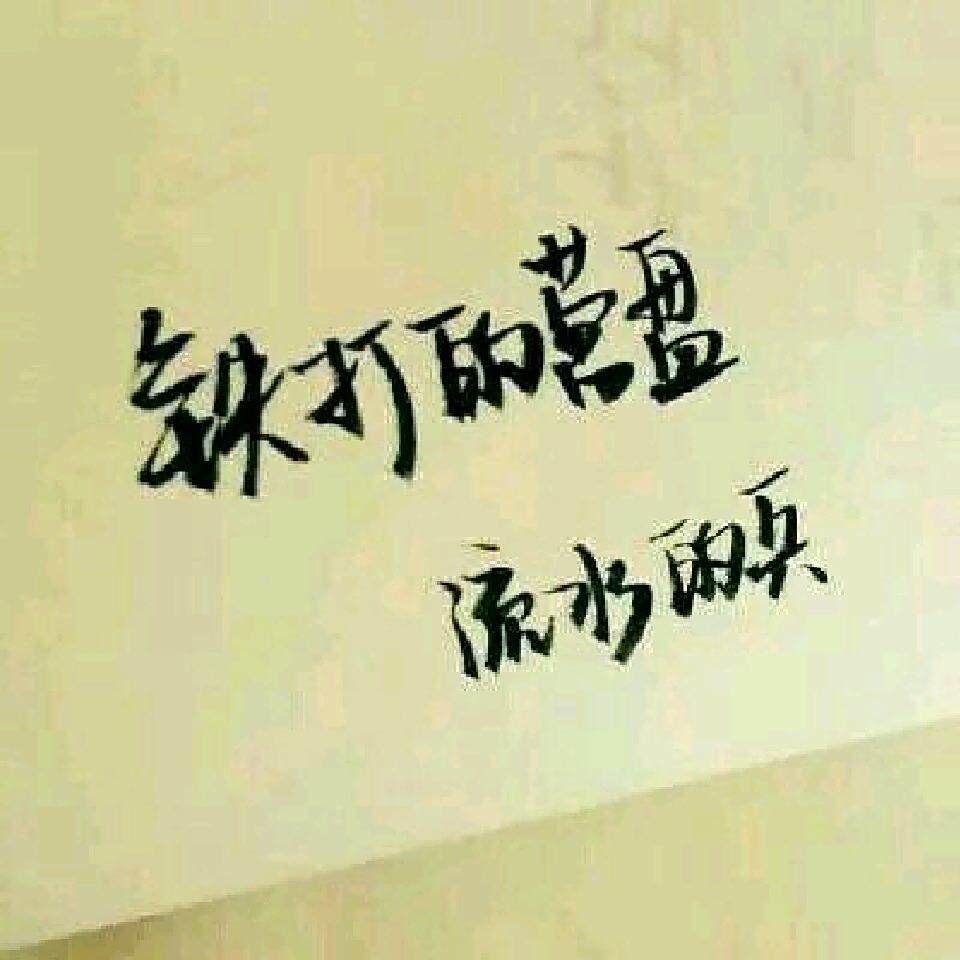 铁打的营盘
流水的兵